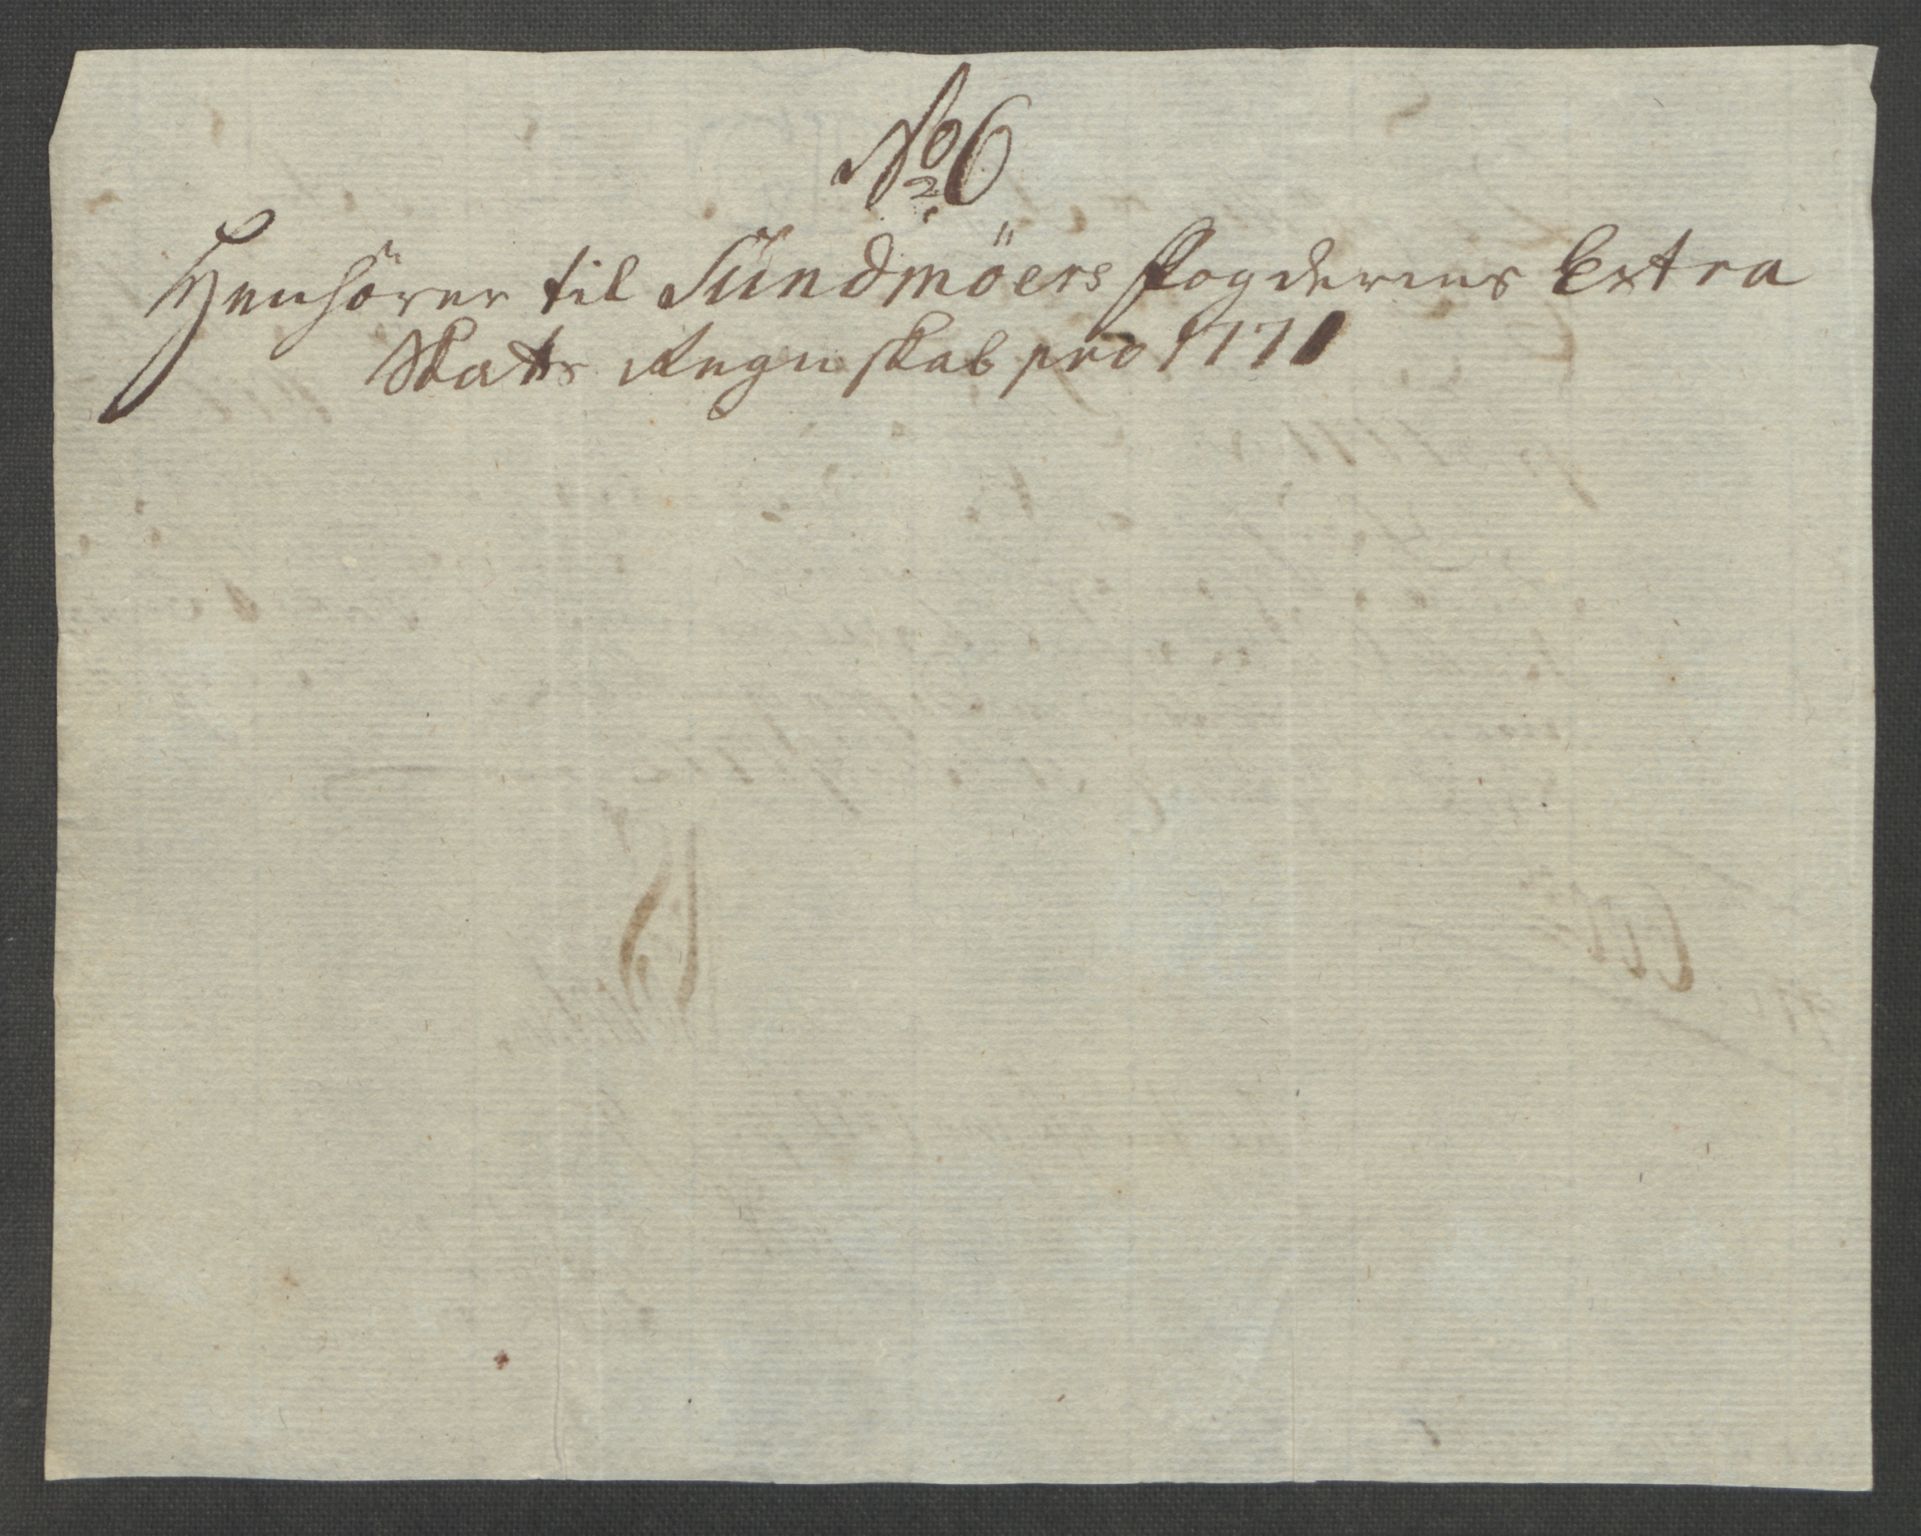 No 6
Henhörer til Sundmöers Fogderies Extra
Skatts Regnskab pro 1771